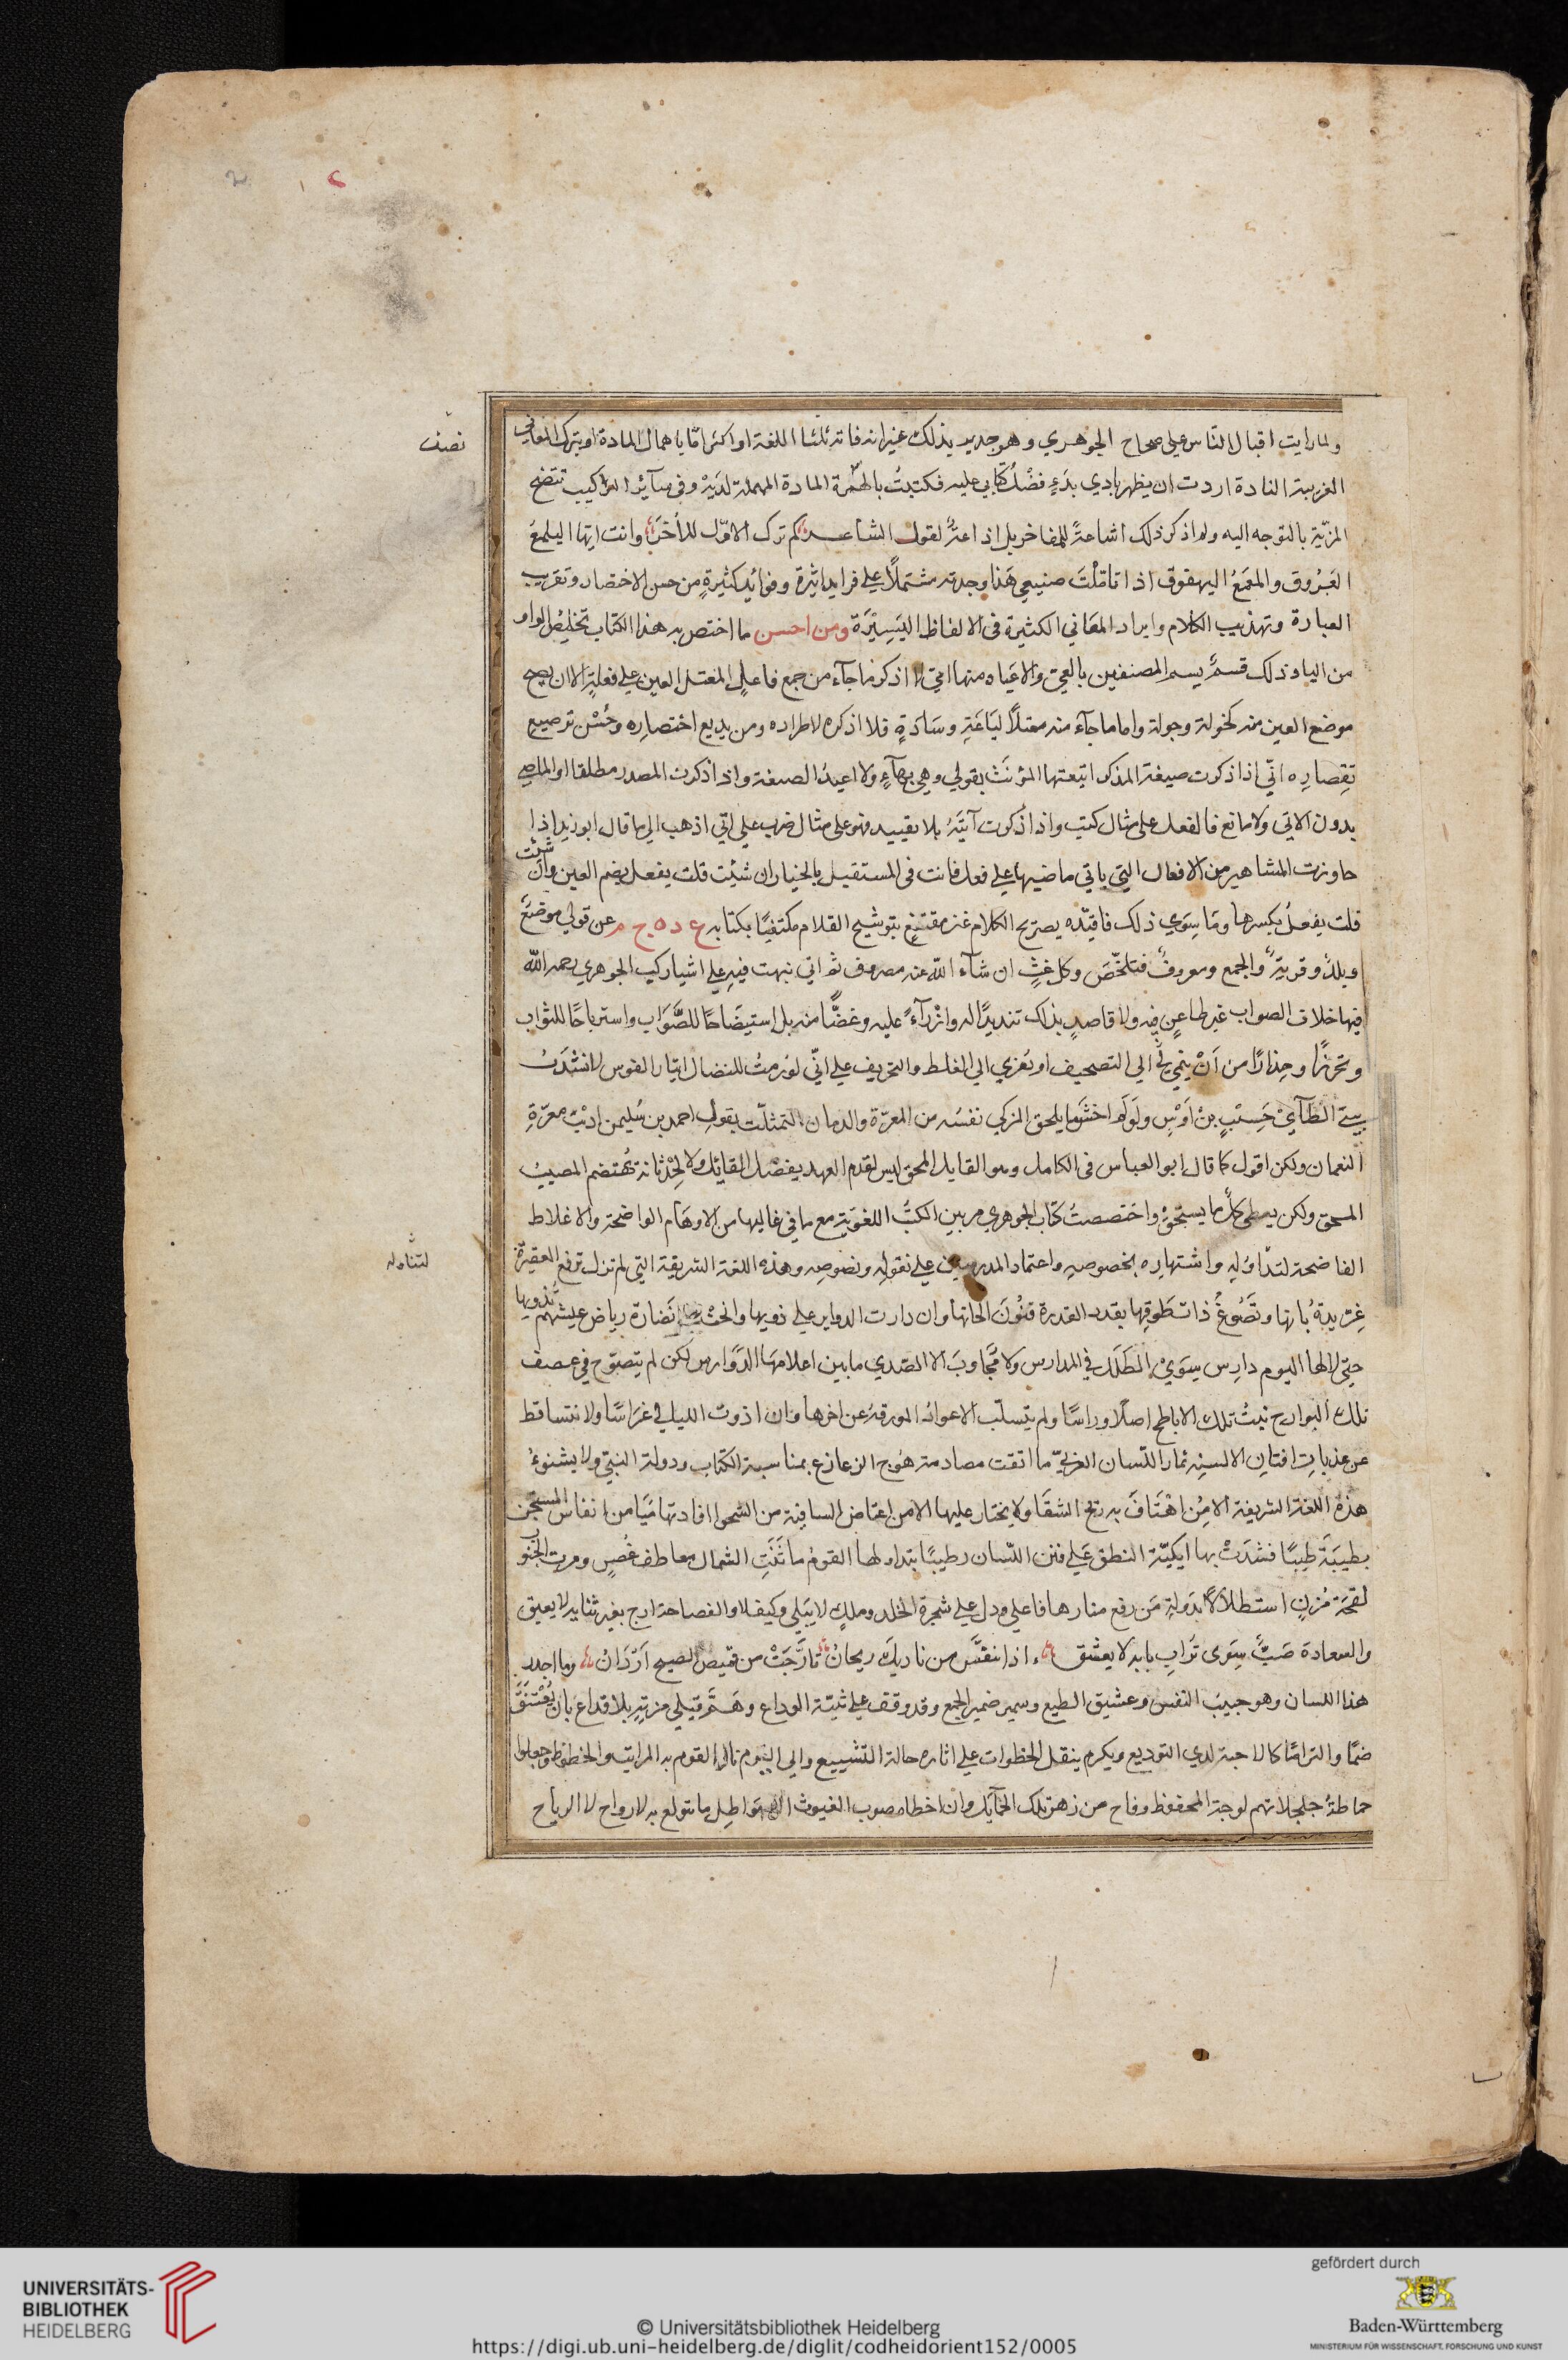 نصف
ولما رايت اقبال الناس على صحاح الجوهري وهو جدير بذلك غير انه فاته ثلثا اللغة او اكثر امّا باهمال المادة او بترك المعاني
الغريبة النادة اردت ان يظهر بادي بدءٍ فضْلُ كتابي عليه فكتبتُ بالحمرة المادة المهملة لدَيْه وفي سآئر التراكيب تتضح
المزيّة بالتوجه اليه ولم اذكر ذلك اشاعةً للمفاخر بل اذاعةً لقول الشاعر كم ترك الاوّل للأخَر وانت ايها اليلمعُ
العَرُوق والمعمَعُ اليهفوف اذا تاملْتَ صنيعي هَذا وجدته مشتملًا على فرايد اثيرة وفوائد كثيرةٍ من حسن الاختصار وتقريب
العبارة وتهذيب الكلام وايراد المعَاني الكثيرة في الالفاظ اليَسِيْرَة ومن احسن ما اختص به هذا الكتاب تخليصُ الواو
من الياء وذلك قسمٌ يسم المصنفين بالعِيّ والاعْياء ومنها انّي لا اذكر ما جآء من جمع فاعلٍ المعتل العين على فعلةٍ الا ان يصح
موضع العين منه كخولة وجولة واما ما جآءَ منه معتلًا لبَاعَةِ وسَادَةٍ فلا اذكره لاطراده ومن بديع اختصارِه وحُسْن ترصيع
تِقصارِه انّي اذا ذكرت صيغة المذكر اتبعتها المؤنَث بقولي وهي بهآءٍ ولا اعيدُ الصيغة واذا ذكرت المصدر مطلقا او الماضي
بدون الاتي ولا مانع فالفعل على مثال كتب واذا ذكرت آتيَهُ بلا تقييد فهو على مثال ضرب على انّي اذهب الى ما قال ابو زيد اذا
جاوزت المشاهير من الافعال التي ياتي ماضيها على فعل فانت في المستقبل بالخيار ان شئت قلت يفعل بضم العين وان شئت
قلت يفعلُ بكسرها ومَا سِوَى ذلك فاقيّده بصريح الكلام غير مقتنعٍ بتوشيح القلام مكتفيًا بكتابه ع د ه ج م عن قولي موضعٌ
وبلدٌ وقريةٌ والجمع ومعروفٌ فتلخّصَ وكل غثٍ ان شآء الله عنه مصروف ثم اني نبهت فيه على اشيا ركب الجوهري رحمه الله
فيها خلاف الصواب غير طاعنٍ فيه ولا قاصدٍ بذلك تنديدًا له وازْرآءً عليه وغضًّا منه بل استيضَاحًا للصَّوَاب واسترباحًا للثواب
وتحرّزًا وحِذارًا من اَنْ ينمي الي التصحيف او يُعزي الي الغلط والتحريف على انّي لو رمتُ للنضال ايتار القوس لانشدَتُ
بيتَي الطآئيْ حَبِيْبِ بنْ اَوْسٍ ولَولَم اخشَ ما يلحق المزكي نفسَه من المعرّة والدمان لتمثلّت بقول احمد بن سُليمن اديْب معرّةِ
النعمان ولكن اقول كما قال ابو العباس في الكامل وهو القايل المحق ليس لقدم العهد يفضل القائِل ولا لِحْدثانة يُهتضم المصيبُ
المحق ولكن يعطى كلٌ ما يستحقّهْ واختصصتُ كتاب الجوهري من بين الكتُب اللغوَية مع ما في غاليها من الاوهَام الواضحة والاغلاط
لتناوله
الفاضحة لتداوُلِه واشتهارِه بخصوصِه واعتماد المدرسين على نقوله ونصوصِه وهذه اللغة الشريفة التي لم تزل ترفع العقيرةُ
غرّيدةُ بانها وتَصُوغُ ذات طَوقِها بقدر القدرة فنُونَ الحانها وان دارت الدواير على ذويها نَضارة رياض عيشهم تذويها
حتى لا لها اليوم دارِس سِوَي الطَلَل في المدارس ولا مُجَاوبَ الا الصّدي ما بين اعلامهَا الدَوارس لكن لم يتصوّح في عصف
تلك البوارح نبتُ تلك الاباطح اصلًا وراسًا ولم يتسلّب الاعواد المورقة عن اخرها وان اذوت الليالي غراسًا ولا تتساقط
عن عذبات افنانِ الالسنِه ثمار اللسان العربيّ ما اتقت مصادمة هُوج الزعازع بمناسبة الكتاب ودولة النبيّ ولا يشنوُ
هذه اللغة الشريفة الا مِن اهْتافَ به ريح الشقَا ولا يختار عليها الا من اعتاض السافية من الشحوا افادتها مَيَا من انفاس المستجن
بطيبَةَ طِيبًا فشدَتْ بها ايكيّة النطق عَلى فنن اللّسان رطيبًا يتداولها القومُ ما ثَنَتِ الشمال معاطف غُصٍن ومرت الجنوب
لقحَة مُزنٍ استظلالًا بدَولة مَن رفع منارها فاعلي ودل على شجرة الخلد وملكٍ لا يَبلي وكيف لا والفصاحة ارج بغير ثنايه لا يعبق
والسعادة صَبٌّ سِوَى تراب بابه لا يعشق اذا تنفّسَ من ناديكَ ريحانٌ تارَّجَتْ من قميصِ الصبح اَرْدَانُ وما اجدر
هذا اللسان وهو حبيبُ النفس وعشيق الطبع وسمير ضمير الجمع وقد وقف على ثنيّة الوداع وهَمَّ قبلي مزنِه بلاقداع بان يُعْتنَقَ
ضمًا والتزامًا كالاحبة لدي التوديع ويكرم بنقل الخطوات على اثاره حالة التشييع والي اليوم نال القوم به المراتب والحظوظ وجعلوا
حماطةُ جلجلانهم لوحة المحفوظ وفاح من زهر تلك الخمآئِل وان اخطا مصوب الغيوث الهَواطِل ما تتولع به لا رواح لا الرياح
UNIVERSITÄTS-
BIBLIOTHEK
HEIDELBERG
© Universitätsbibliothek Heidelberg
https://digi.ub.uni-heidelberg.de/diglit/codheidorient152/0005
gefördert durch
Baden-Württemberg
MINISTERIUM FÜR WISSENSCHAFT, FORSCHUNG UND KUNST